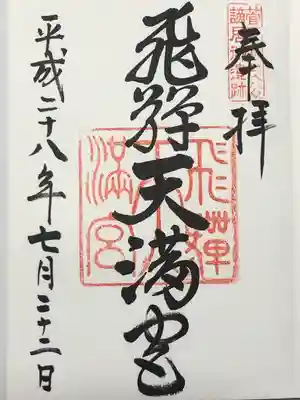 奉拝
飛騨天満宮
飛騨天満宮
平成二十八年七月二十二日